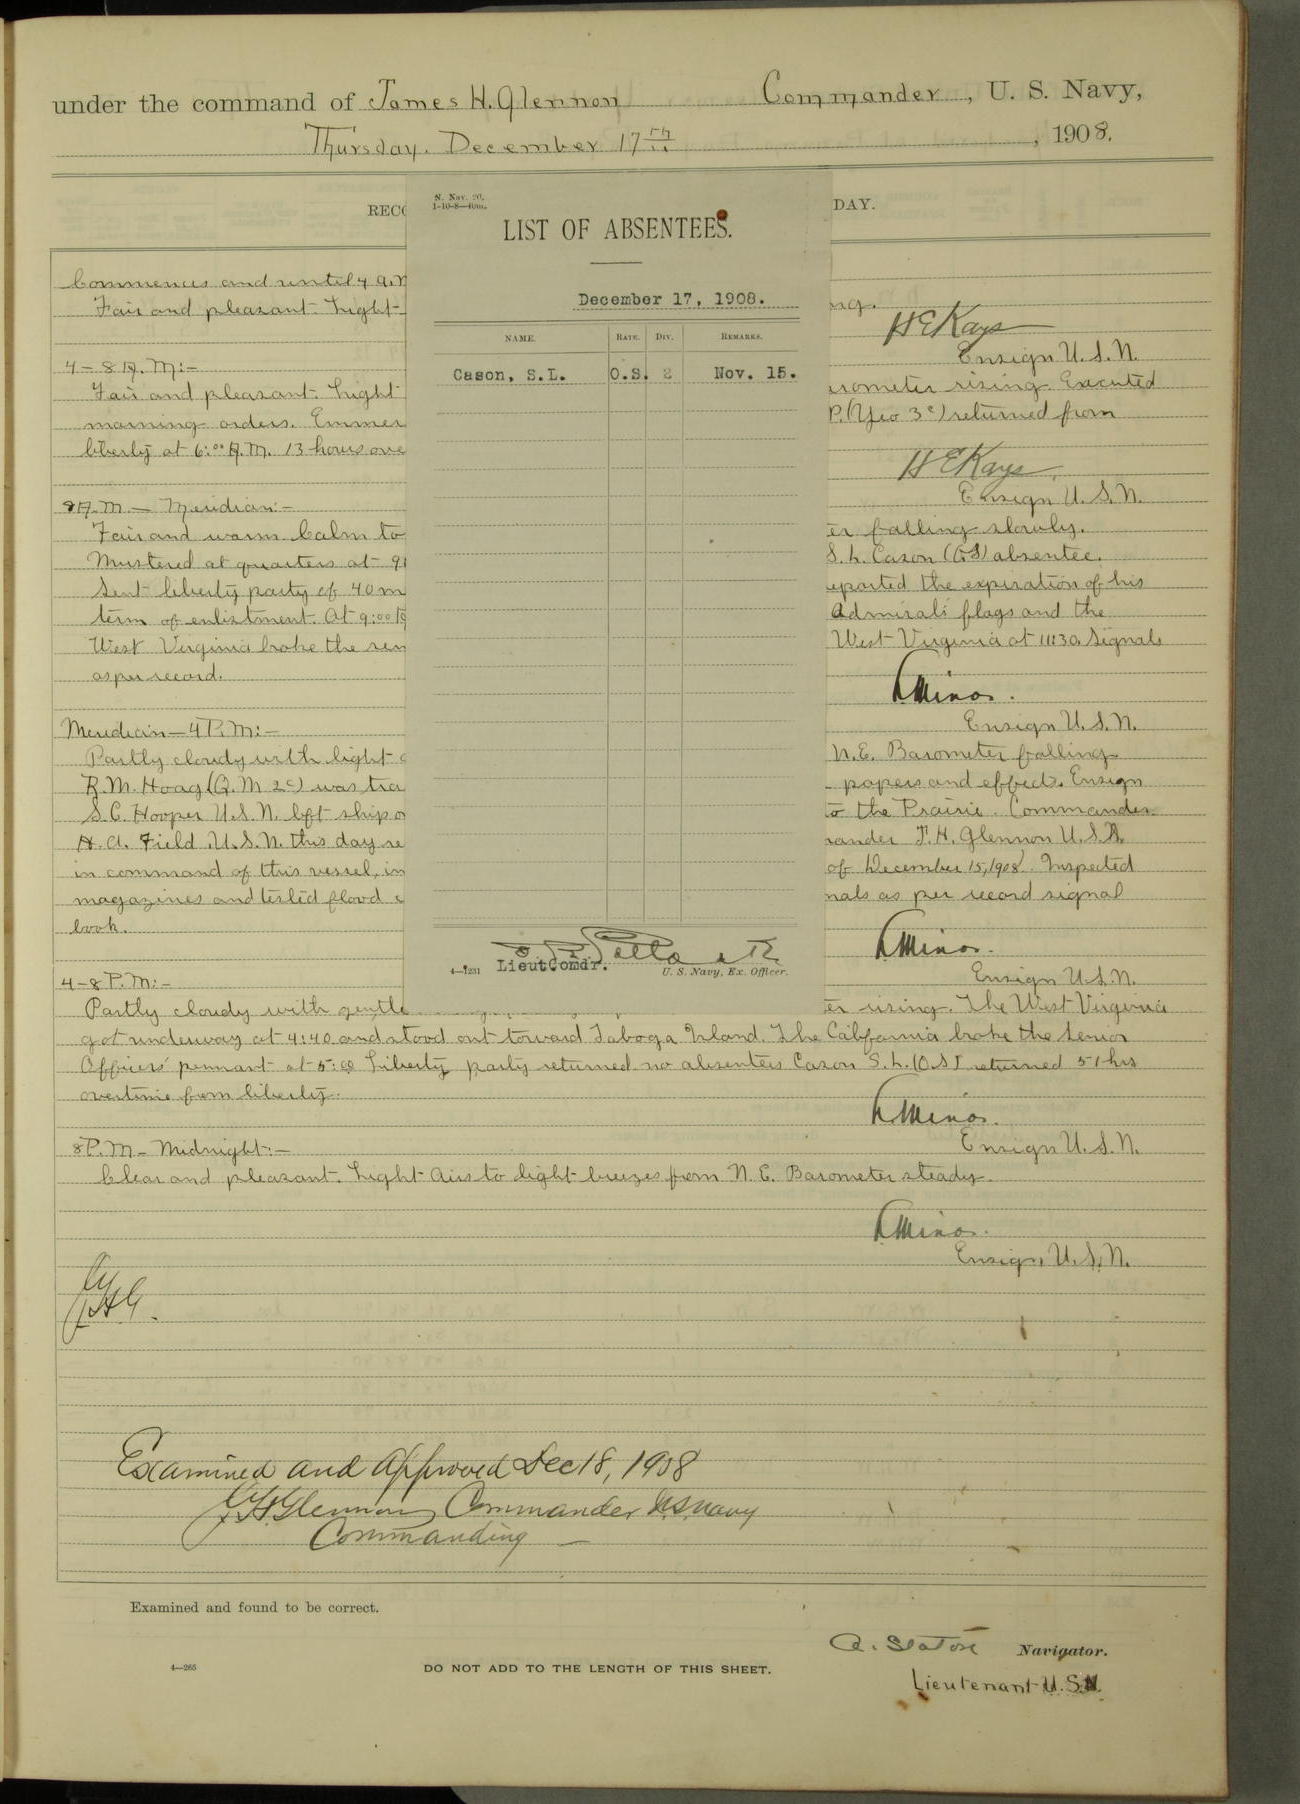 under the command of James H. Glennon Commander, U. S. Navy,
Thursday. December 17th, 1908.
RECO DAY.
N. Nav. 20.
1-10-8—40m.
LIST OF ABSENTEES.
December 17, 1908.
NAME. RATE. DIV. REMARKS.
Cason, S.L. O.S. 2 Nov. 15.
LieutComdr.
4—1231 U. S. Navy, Ex. Officer.
Commences and until 4 a.m
Fair and pleasant. Light ng.
H E Kays
Ensign U. S. N.
4-8 A.M:-
Fair and pleasant. Light arometer rising. Executed
morning orders. Emmer P. (Yeo 3c) returned from
liberty at 6:00 A.M. 13 hours ove
H E Kays.
Ensign U. S. N.
8 A.M. — Meridian:-
Fair and warm Calm to er falling slowly.
Mustered at quarters at 9 S. L. Cason (O.S) absentee.
Sent liberty party of 40 m eported the expiration of his
term of enlistment. At 9:00 Admirals flags and the
West Virginia broke the sen West Virginia at 11:30. Signals
as per record.
Minor.
Ensign U. S. N.
Meridian—4 P.M:-
Partly cloudy with light N.E. Barometer falling
R. M. Hoag (Q.M 2c) was tra papers and effects. Ensign
S. C. Hooper U.S.N. left ship o to the Prairie. Commander
H. A. Field U.S.N. this day re mander J. H. Glennon U.S.N.
in command of this vessel, in of December 15, 1908. Inspected
magazines and tested flood nals as per record signal
book.
Minor.
Ensign U.S.N.
4-8 P.M:-
Partly cloudy with gentle er rising. The West Virginia
got underway at 4:40 and stood out toward Taboga Island. The California broke the senior
Officers' pennant at 5:00 Liberty party returned no absentees Cason S. L. (O.S) returned 51 hrs
overtime from liberty.
Minor.
Ensign U. S. N.
8 P.M — Midnight:-
Clear and pleasant. Light airs to light breezes from N. E. Barometer steady.
Minor.
Ensign, U.S.N.
JHG.
Examined and Approved Dec 18, 1908
J H Glennon Commander U.S. Navy
Commanding
Examined and found to be correct.
A. Staton Navigator.
4—265 DO NOT ADD TO THE LENGTH OF THIS SHEET. Lieutenant U.S.N.